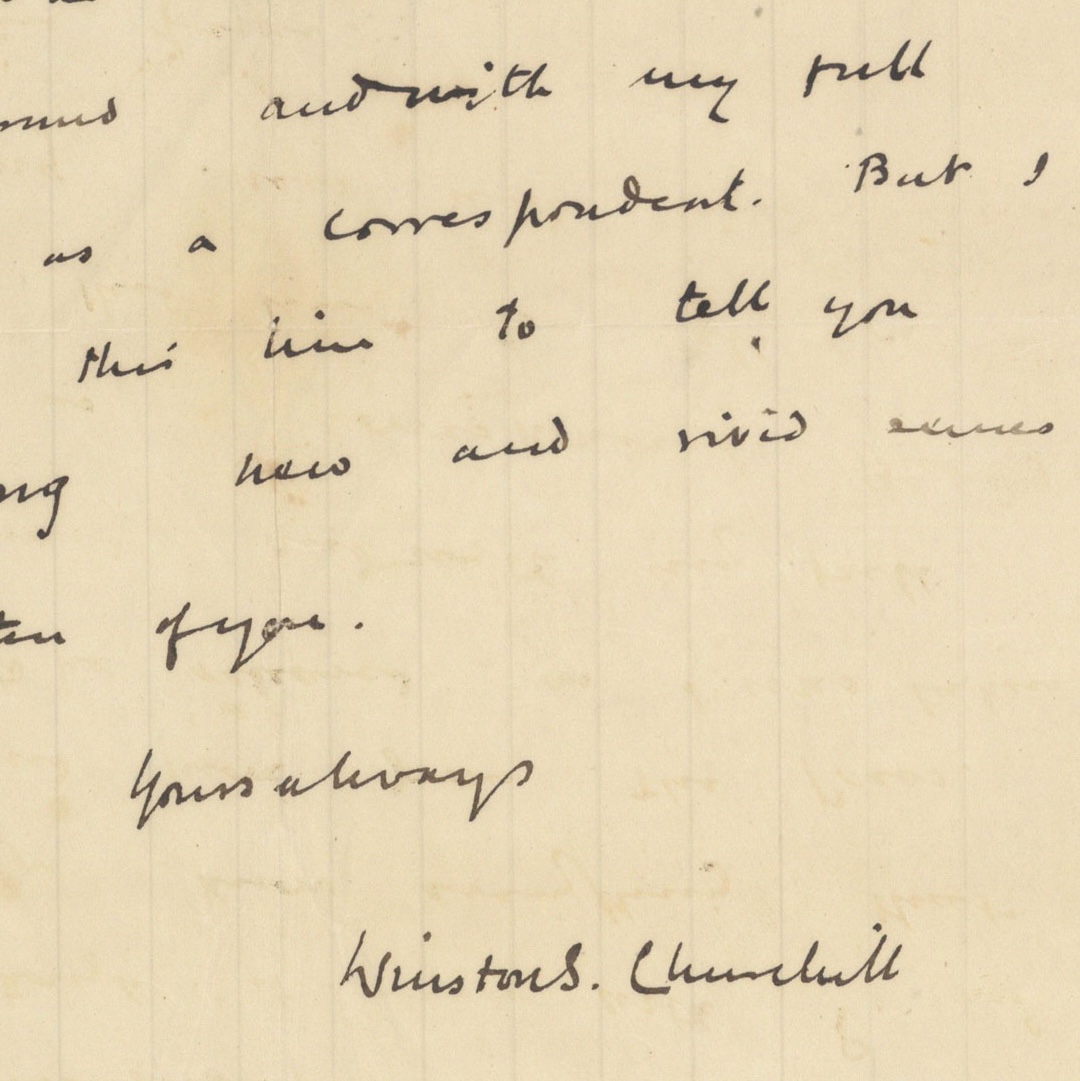 and with my full
as a correspondent. But I
this line to tell you
new and vivid
of you.
Yours always
Winston S. Churchill